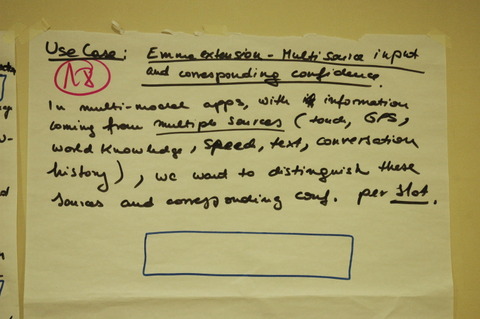 Use Case: Emma extension - Multi source input
and corresponding confidence.
18
In multi-modal apps, with information
coming from multiple sources (touch, GPS,
world knowledge, speed, text, conversation
history), we want to distinguish these
sources and corresponding conf. per slot.